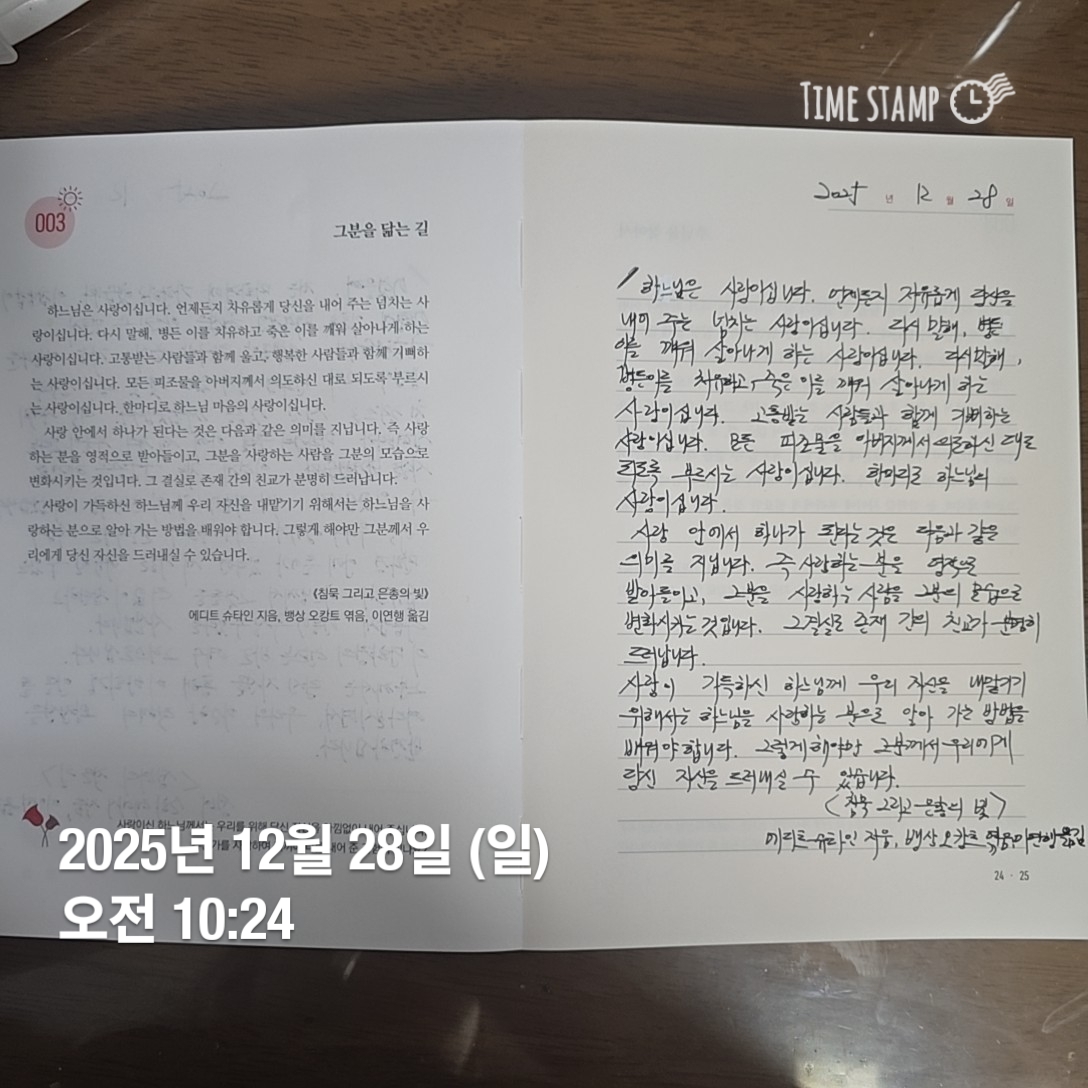 TIME STAMP
003
그분을 닮는 길
하느님은 사랑이십니다. 언제든지 자유롭게 당신을 내어 주는 넘치는 사
랑이십니다. 다시 말해, 병든 이를 치유하고 죽은 이를 깨워 살아나게 하는
사랑이십니다. 고통받는 사람들과 함께 울고, 행복한 사람들과 함께 기뻐하
는 사랑이십니다. 모든 피조물을 아버지께서 의도하신 대로 되도록 부르시
는 사랑이십니다. 한마디로 하느님 마음의 사랑이십니다.
사랑 안에서 하나가 된다는 것은 다음과 같은 의미를 지닙니다. 즉 사랑
하는 분을 영적으로 받아들이고, 그분을 사랑하는 사람을 그분의 모습으로
변화시키는 것입니다. 그 결실로 존재 간의 친교가 분명히 드러납니다.
사랑이 가득하신 하느님께 우리 자신을 내맡기기 위해서는 하느님을 사
랑하는 분으로 알아 가는 방법을 배워야 합니다. 그렇게 해야만 그분께서 우
리에게 당신 자신을 드러내실 수 있습니다.
《침묵 그리고 은총의 빛》
에디트 슈타인 지음, 뱅상 오캉트 엮음, 이연행 옮김
사랑이신 하느님께서는 우리를 위해 당신
2025년 12월 28일 (일)
오전 10:24
2025 년 12 월 28 일
하느님은 사랑이십니다. 언제든지 자유롭게 당신을
내어 주는 넘치는 사랑이십니다. 다시 말해, 병든
이를 깨워 살아나게 하는 사랑이십니다. 다시말해,
병든이를 치유하고, 죽은 이를 깨워 살아나게 하는
사랑이십니다. 고통받는 사람들과 함께 기뻐하는
사랑이십니다. 모든 피조물을 아버지께서 의도하신 대로
되도록 부르시는 사랑이십니다. 한마디로 하느님의
사랑이십니다.
사랑 안에서 하나가 된다는 것은 다음과 같은
의미를 지닙니다. 즉 사랑하는 분을 영적으로
받아들이고, 그분을 사랑하는 사람을 그분의 모습으로
변화시키는 것입니다. 그결실로 존재 간의 친교가 분명히
드러납니다.
사랑이 가득하신 하느님께 우리 자신을 내맡기기
위해서는 하느님을 사랑하는 분으로 알아 가는 방법을
배워야 합니다. 그렇게 해야만 그분께서 우리에게
당신 자신을 드러내실 수 있습니다.
〈침묵 그리고 은총의 빛〉
에디트 슈타인 지음, 뱅상 오캉트 엮음, 이연행 옮김
24 · 25